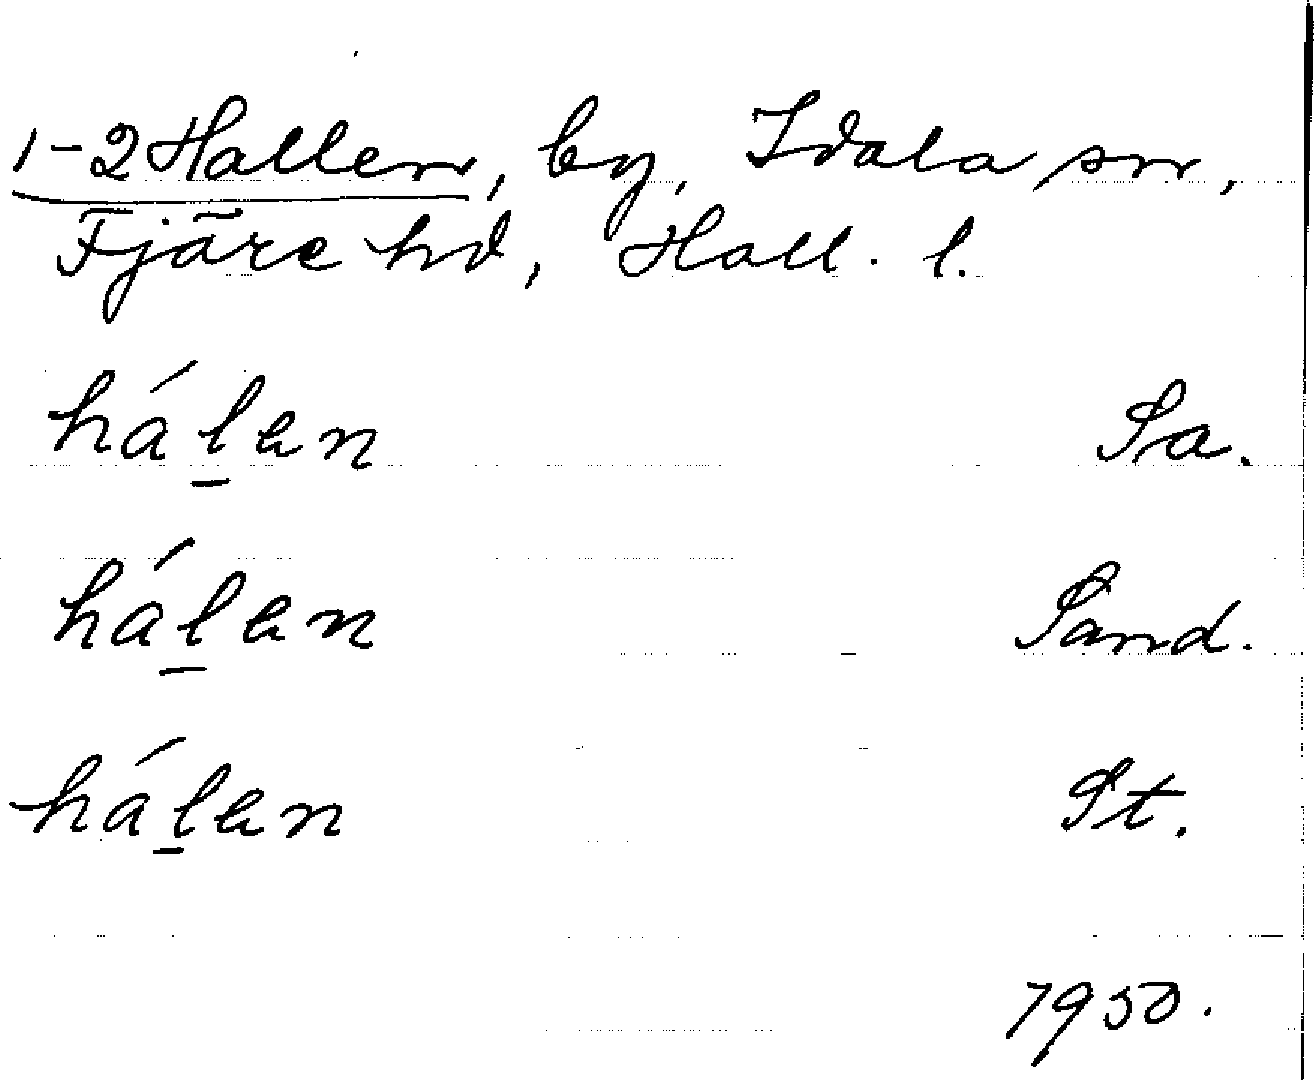 1-2 Hallen, by, Idala sn,
Fjäre hd, Hall. l.
hál̲en Sa.
hál̲en Sand.
hál̲en St.
1950.